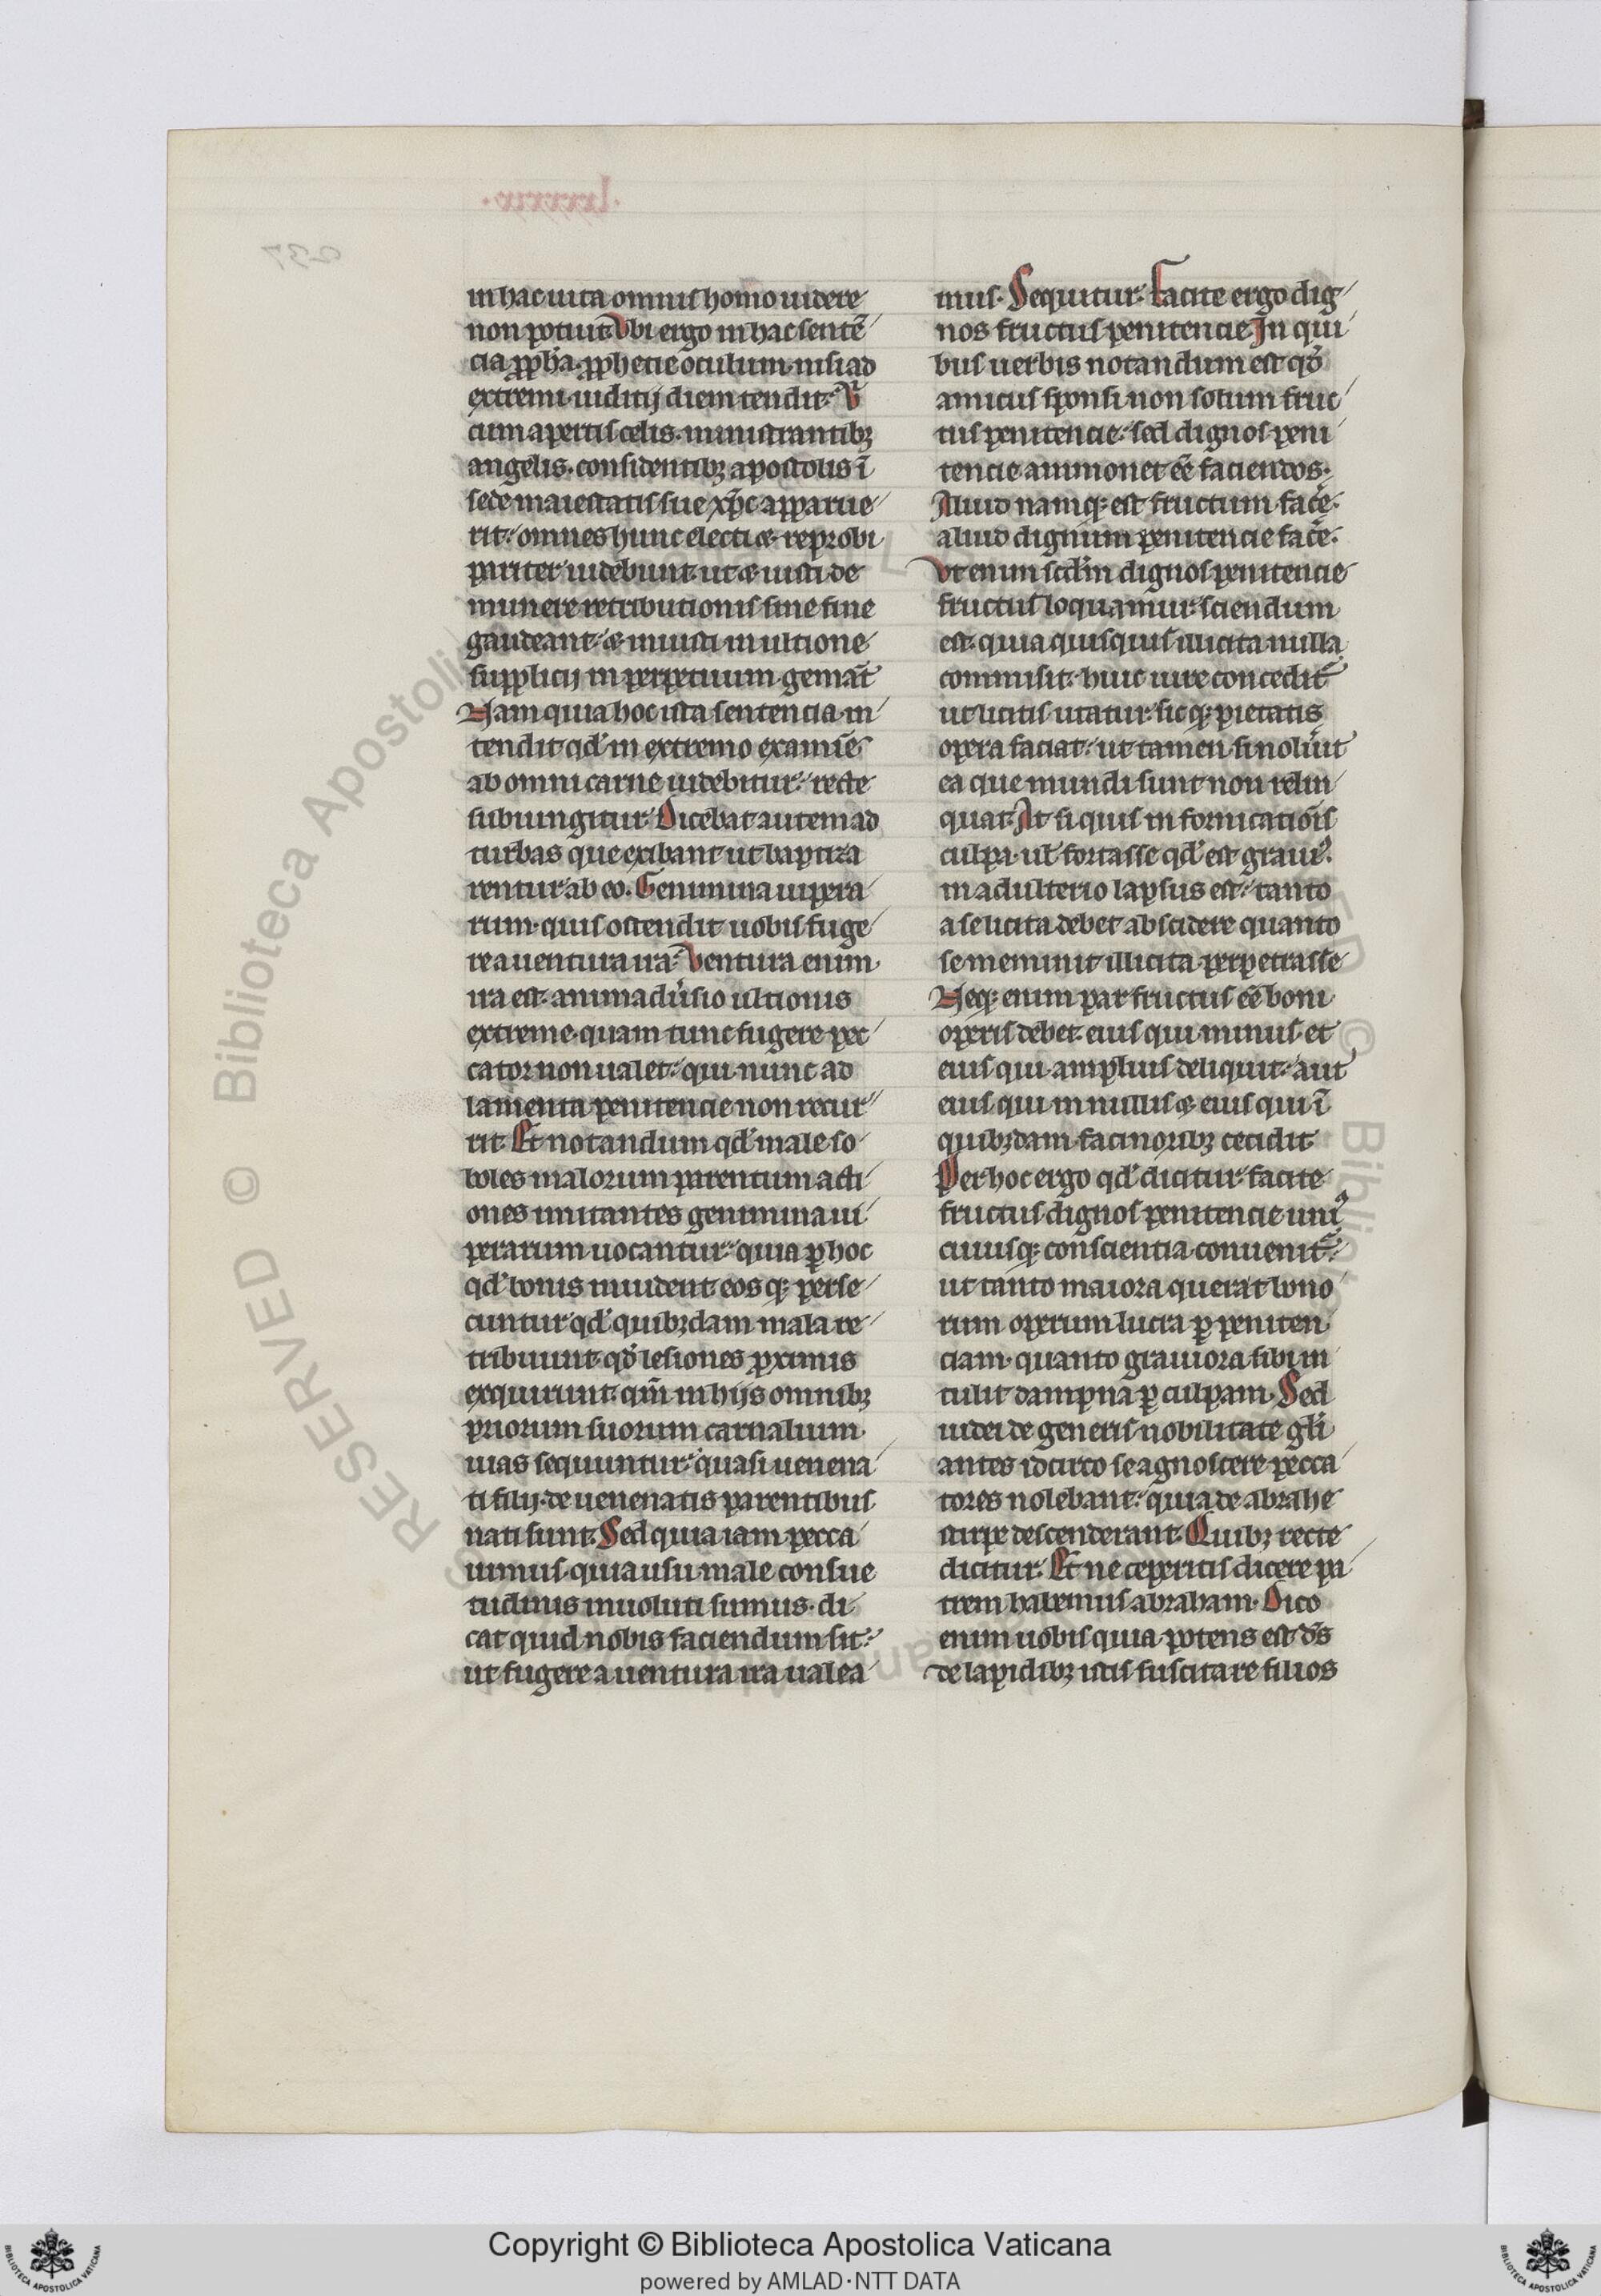 in hac uita omnis homo uidere
non potuit. Vbi ergo in hac sentē
cia ꝓph̄a. ꝓphetie oculum. nisi ad
extremi iudicij diem tendit.
cum apertis celis. ministrantibꝫ
angelis. consedentibꝫ apostolis ī
sede maiestatis sue xp̄c apparue
rit. omnes hunc electi ⁊ reprobi
pariter uidebunt. ut ⁊ iusti de
munere retributionis sine fine
gaudeant. ⁊ iniusti in ultione
supplicij in perpetuum gemāt
Nam quia hoc ista sentencia in
tendit qd̓ in extremo examīe
ab omni carne uidebitur. recte
subiungitur. Dicebat autem ad
turbas que exibant ut baptiza
rentur ab eo. Genimina uipera
rum. quis ostendit uobis fuge
re a uentura ira. Ventura enim
ira est. animadūsio ultionis
extreme. quam tunc fugere pec
cator non ualet. qui nunc ad
lamenta penitencie non recur
rit. Et notandum qd̓ male so
boles malorum parentum acti
ones imitantes genimina ui
perarum uocantur. quia ꝑ hoc
qd̓ bonis inuident. eosqꝫ perse
cuntur. qd̓ quibꝫdam mala re
tribuunt. qd̓ lesiones ꝓximis
exquirunt. qm̄ in hijs omnibꝫ
priorum suorum carnalium
uias sequuntur. quasi uenena
ti filij. de uenenatis parentibus
nati sunt. Sed quia iam pecca
uimus. quia usu male consue
tudinis inuoluti sumus. di
cat quid nobis faciendum sit.
ut fugere a uentura ira ualea
mus. Sequitur. Facite ergo dig
nos fructus penitencie. In qui
bus uerbis notandum est qd̓
amicus sponsi non solum fruc
tus penitencie. sed dignos peni
tencie ammonet ee̅ faciendos.
Aliud namqꝫ est fructum face̅.
aliud dignum penitencie face̅.
Vt enim scd̓m dignos penitencie
fructus loquamur. sciendum
est. quia quisquis illicita nulla
commisit. huic iure concedit̃
ut licitis utatur. sicqꝫ pietatis
opera faciat. ut tamen si noluīt
ea que mundi sunt non relin
quat. At si quis in fornicatiōis
culpa. ul̓ fortasse qd̓ est grauiꝰ.
in adulterio lapsus est. tanto
a se licita debet abscidere quanto
se meminit illicita perpetrasse
Neqꝫ enim par fructus ee̅ boni
operis debet. eius qui minus. et
eius qui amplius deliquit. aut
eius qui in nullis ⁊ eius qui ī
quibꝫdam facinoribꝫ cecidit.
Per hoc ergo qd̓ dicitur. facite
fructus dignos penitencie. uniꝰ
cuiusqꝫ conscientia conuenit̃.
ut tanto maiora querat bono
rum operum lucra ꝑ peniten
ciam. quanto grauiora sibi in
tulit dampna ꝑ culpam. Sed
iudei de generis nobilitate gl̓i
antes idcirco se agnoscere pecca
tores nolebant. quia de abrahe
stirpe descenderant. Quibꝫ recte
dicitur. Et ne ceperitis dicere pa
trem habemus abraham. Dico
enim uobis quia potens est ds̄
de lapidibꝫ istis suscitare filios
RESERVED © Biblioteca Apostolica
© Biblio
Copyright © Biblioteca Apostolica Vaticana
powered by AMLAD·NTT DATA